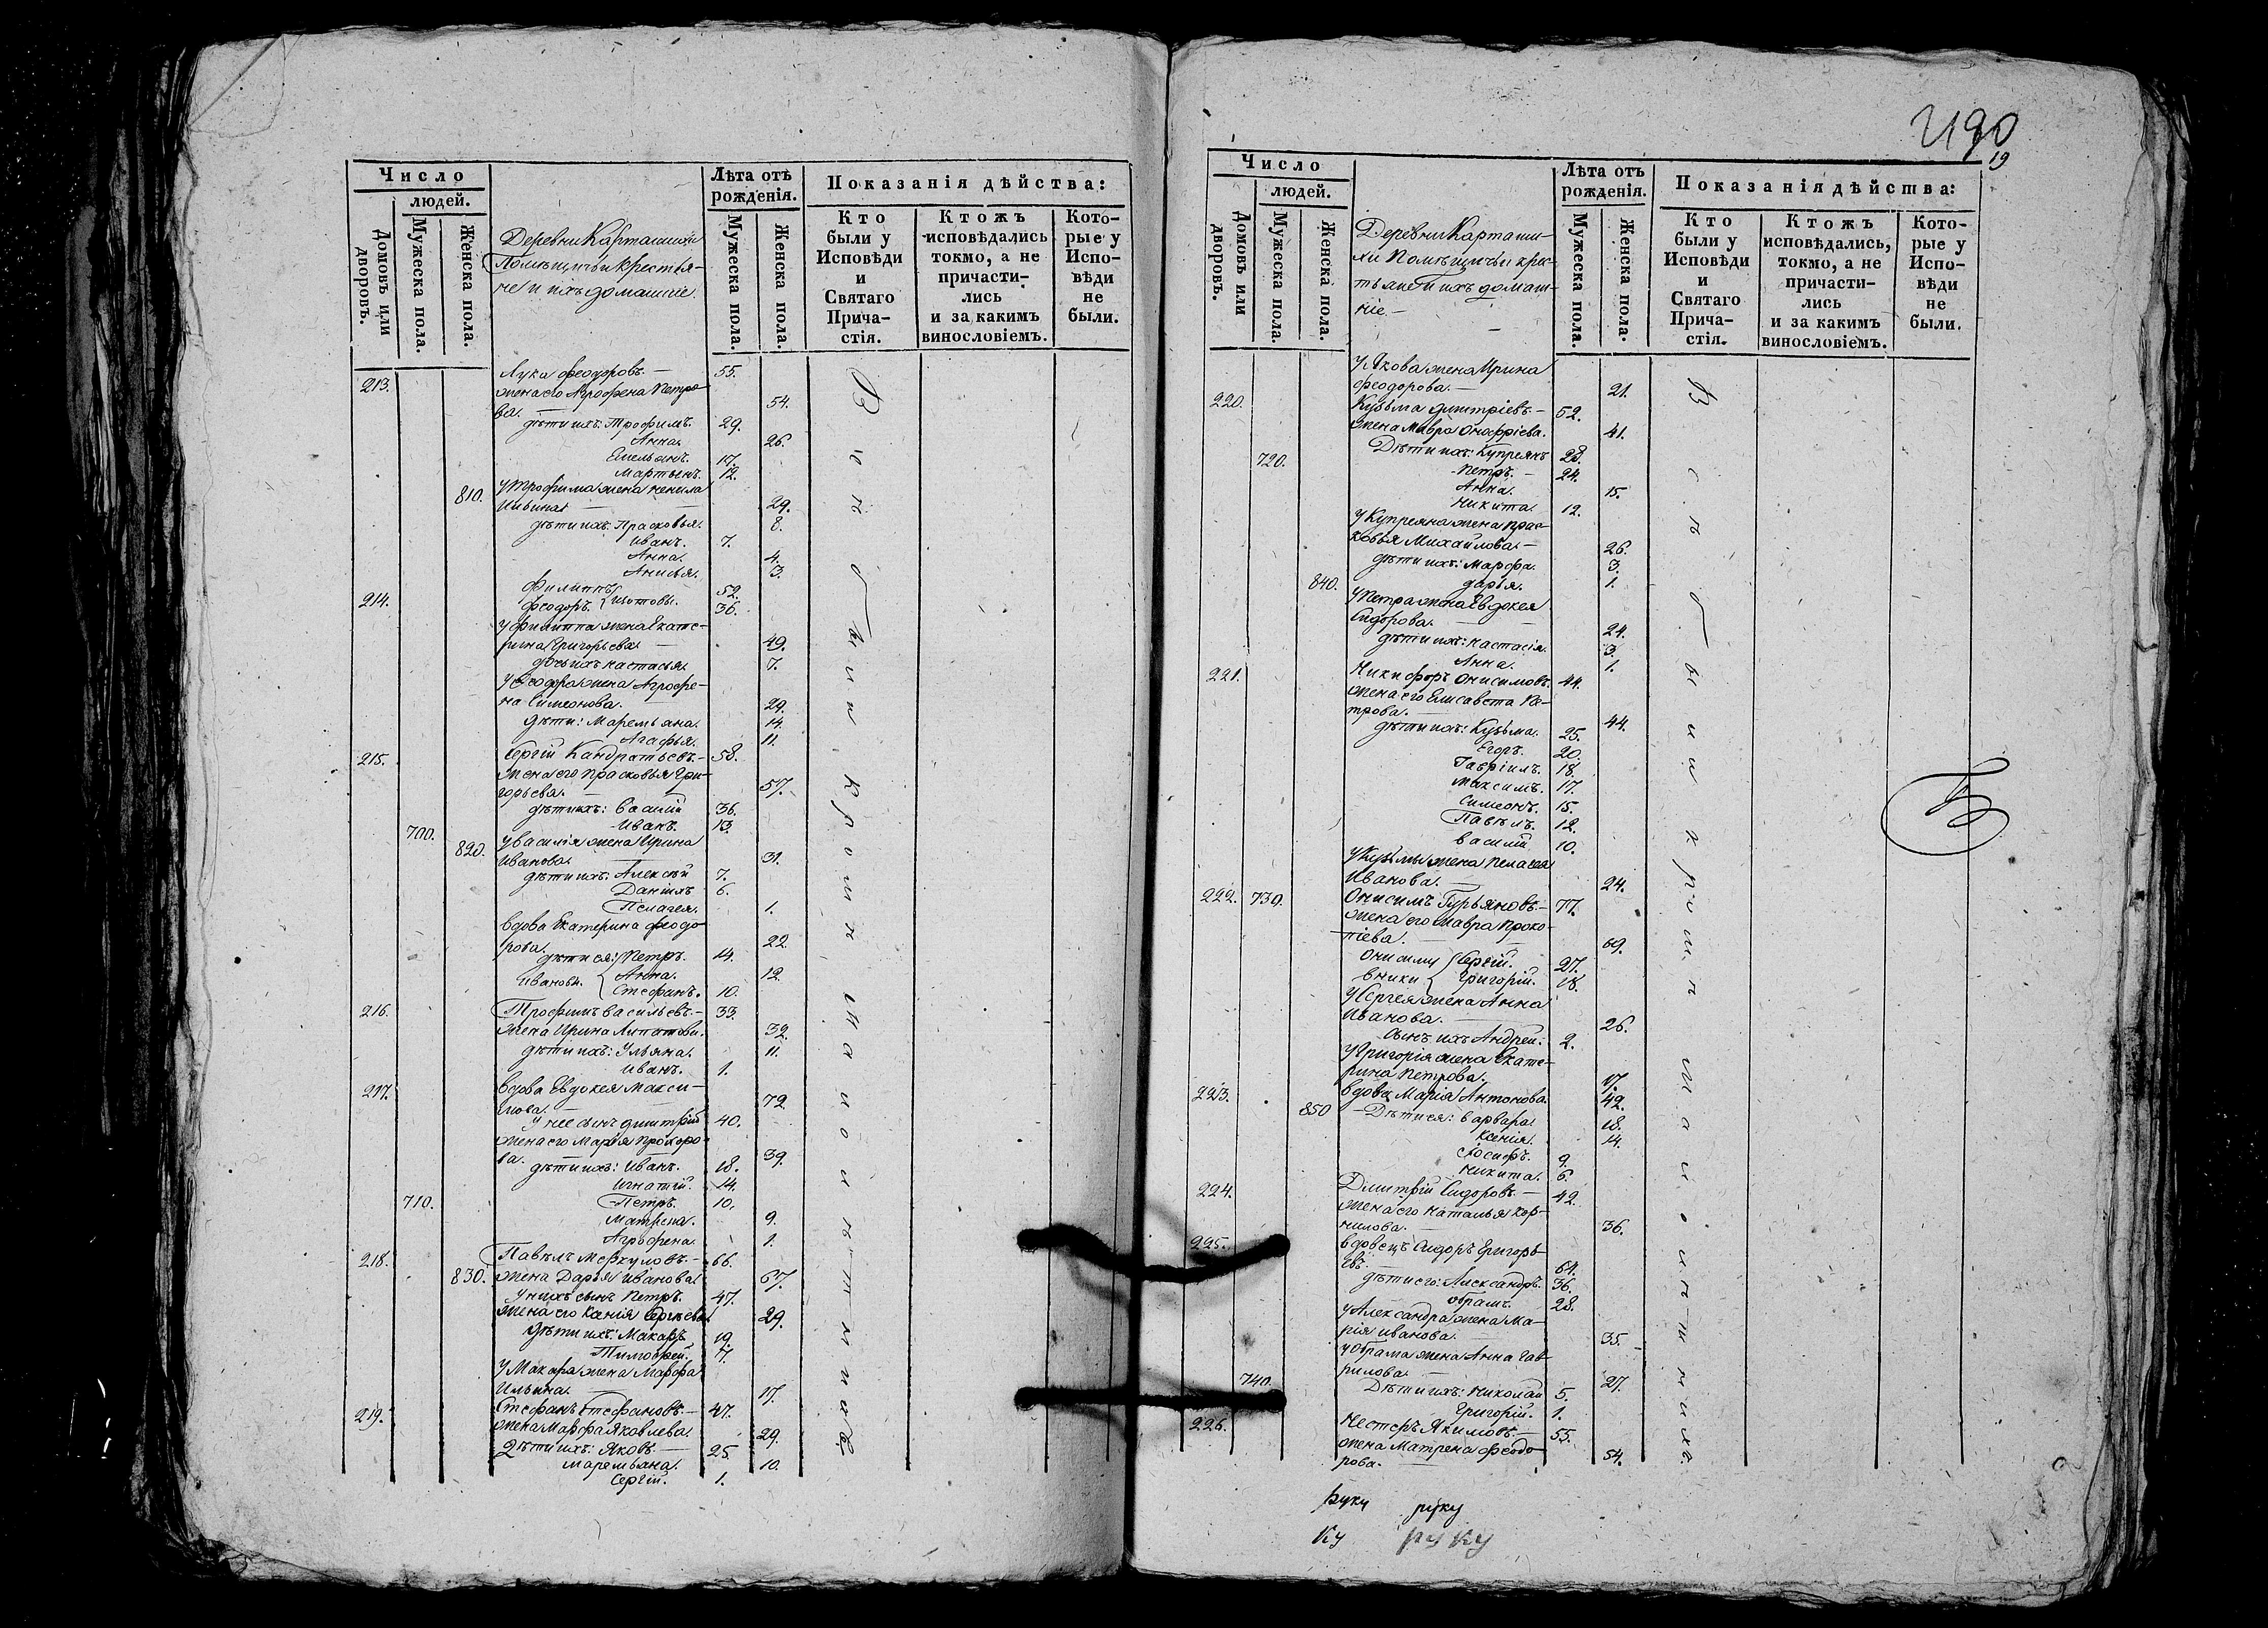 Число
людей.
Домовъ или дворовъ.
Мужеска пола.
Женска пола.
Деревни Карташихи
Помѣщичьи крестья-
не и ихъ домашніе.
Лѣта отъ рожденія.
Мужеска пола.
Женска пола.
Показанія дѣйства:
Кто были у Исповѣди и Святаго Прича-стія.
Ктожъ исповѣдались токмо, а не причасти-лись и за какимъ винословіемъ.
Кото-рые у Испо-вѣди не были.
213. Лука Феодоровъ. — 55.
жена его Агрофена Петро-
ва. — 54.
дѣти ихъ: Трофимъ. 29.
Анна. 26.
Емельянъ. 17.
Мартынъ. 12.
810. У Трофима жена Ненила
Ильина — 29.
дѣти ихъ: Прасковья. 8.
Иванъ. 7.
Анна. 4.
Анисья. 3.
Филиппъ 52.
214. Феодоръ. Изотовы. 36.
У Филиппа жена Екате-
рина Григорьева — 49.
дочь ихъ Настасья. 7.
У Феодора жена Агрофе-
на Симеонова. — 29.
дѣти: Маремьяна. 14.
Агафья. 11.
215. Сергій Кандратьевъ. — 58.
жена его Прасковья Гри-
горьева. — 57.
дѣти ихъ: Василій 36.
Иванъ. 13.
700. 820. У Василія жена Ирина
Иванова. 31.
дѣти ихъ: Алексѣй 7.
Даніилъ 6.
Пелагея. 1.
Вдова Екатерина Феодо-
рова. 22.
дѣти ея: Петръ. 14.
Ивановы. Анна. 12.
Стефанъ. 10.
216. Трофимъ Васильевъ. — 33.
жена Ирина Антонова. 32.
дѣти ихъ: Ульяна. 11.
Иванъ. 1.
217. Вдова Евдокея Макси-
мова. — 72.
У нее сынъ Дмитрій 40.
жена его Марія Прохоро-
ва. 39.
дѣти ихъ: Иванъ. 18.
Игнатій. 14.
710. Петръ. 10.
Матрена. 9.
Агрофена. 1.
218. Павелъ Меркуловъ. — 66.
830. жена Дарья Иванова. 67.
У нихъ сынъ Петръ. 47.
жена его Ксенія Сергѣева 29.
дѣти ихъ: Макаръ. 19.
Тимофей. 7.
У Макара жена Марфа
Ильина. 17.
219. Стефанъ Стефановъ. — 47.
жена Марфа Яковлева. 29.
Дѣти ихъ: Яковъ. — 25.
Маремьяна. 10.
Сергій. 1.
Всѣ были кромѣ малолѣтнихъ
19
Число
людей.
Домовъ или дворовъ.
Мужеска пола.
Женска пола.
Деревни Карташи-
хи Помѣщичьи крес-
тьяне и ихъ домаш-
ніе —
Лѣта отъ рожденія.
Мужеска пола.
Женска пола.
Показанія дѣйства:
Кто были у Исповѣди и Святаго Прича-стія.
Ктожъ исповѣдались, токмо, а не причасти-лись и за какимъ винословіемъ.
Кото-рые у Испо-вѣди не были.
У Якова жена Ирина
Феодорова. — 21.
220. Кузьма Дмитріевъ. — 52.
жена Мавра Онофріева. 41.
720. Дѣти ихъ: Купреянъ 28.
Петръ. — 24.
Анна. 15.
Никита. 12.
У Купреяна жена Прас-
ковья Михайлова. — 26.
дѣти ихъ: Марфа. 3.
840. Дарья. 1.
У Петра жена Евдокея
Сидорова. — 24.
дѣти ихъ: Настасія. 3.
Анна. 1.
221. Никифоръ Онисимовъ. 44.
жена его Елисавета Пе-
трова. — 44.
дѣти ихъ: Кузьма. 25.
Егоръ. 20.
Гавріилъ. 18.
Максимъ. 17.
Симеонъ. 15.
Павелъ. 12.
Василій 10.
У Кузьмы жена Пелагея
Иванова. — 24.
222. 730. Онисимъ Гурьяновъ. — 77.
жена его Мавра Проко-
піева. — 69.
Онисиму Сергій. 27.
внуки Григорій. 18.
У Сергея жена Анна
Иванова. — 26.
Сынъ ихъ Андрей. 2.
У Григорія жена Екате-
рина Петрова. 17.
223. Вдова Марія Антонова. 42.
850 — Дѣти ея: Варвара. 18.
Ксенія. 14.
Іосифъ. 9.
Никита. 6.
224. Дмитрій Сидоровъ. — 42.
жена его Наталья Кор-
нилова. — 36.
225. Вдовецъ Сидоръ Григорь-
евъ. — 64.
дѣти его: Александръ. 36.
Абрамъ. 28.
У Александра жена Ма-
рія Иванова. — 35.
У Абрама жена Анна Гав-
рилова. — 27.
740. Дѣти ихъ: Николай 5.
Григорій. 1.
226. Нестеръ Якимовъ. — 55.
жена Матрена Феодо-
рова. — 54.
Всѣ были кромѣ малолѣтнихъ.
руку руку
ку руку